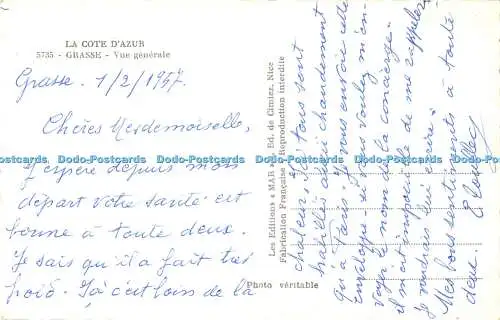 LA COTE D'AZUR
5735 - GRASSE - Vue générale
Grasse. 1/2/1957.
Chères Mesdemoiselle,
J'espère depuis mon
départ votre santé est
bonne à toute deux.
Je sais qu'il a fait très
froid. Ici c'est loin de la
chaleur. Ici tous sont
habillés aussi chaudement
qu'à Paris. Je vous envoie cette
enveloppe si vous voulez m'en-
voyer le nom de la concierge.
il m'est impossible de me rappeler
je voudrais lui écrire.
Mes bons sentiments à toute
deux.
Les Editions « MAR », Ed. de Cimiez, Nice
Fabrication Française - Reproduction interdite
Photo véritable
Dodo-Postcards Dodo-Postcards Dodo-Postcards Dodo-Postcards Dodo-Postcards